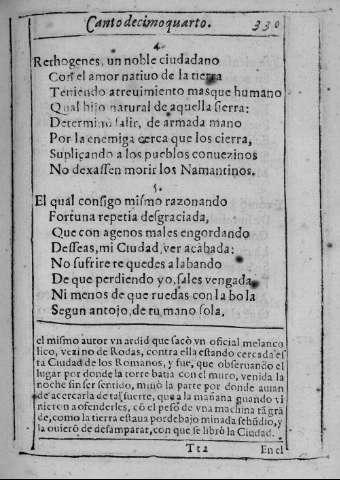 Canto decimoquarto. 330
4.
Rethogenes, un noble ciudadano
Con el amor natiuo de la tierra
Teniendo atreuimiento mas que humano
Qual hijo natural de aquella sierra:
Determinò salir, de armada mano
Por la enemiga cerca que los cierra,
Suplicando a los pueblos conuezinos
No dexassen morir los Namantinos.
5.
El qual consigo mismo razonando
Fortuna repetia desgraciada,
Que con agenos males engordando
Desseas, mi Ciudad, ver acabada:
No sufrire te quedes alabando
De que perdiendo yo, sales vengada
Ni menos de que ruedas con la bola
Segun antojo, de tu mano sola.
el mismo autor vn ardid que sacò vn oficial melanco
lico, vezino de Rodas, contra ella estando cercada es
ta Ciudad de los Romanos, y fue, que obseruando el
lugar por donde la torre batia con el muro, venida la
noche sin ser sentido, minò la parte por donde auian
de acercarla de tal suerte, que a la mañana quando vi
nieron a ofenderles, cõ el peso de vna machina tã grã
de, como la tierra estaua por debajo minada se hũdio, y
la ouierõ de desamparar, con que se librò la Ciudad.
Tt2 En el